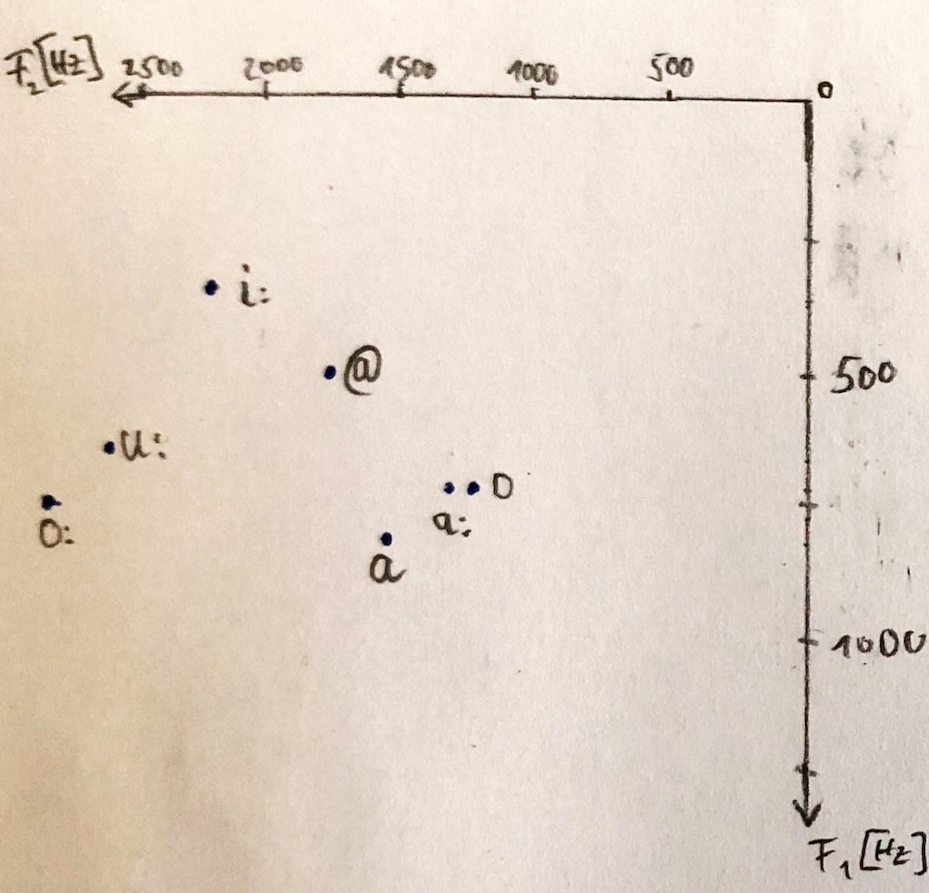 F₂[Hz] 2500 2000 1500 1000 500 0
i:
@ 500
u:
o:
a:
a
1000
F₁[Hz]